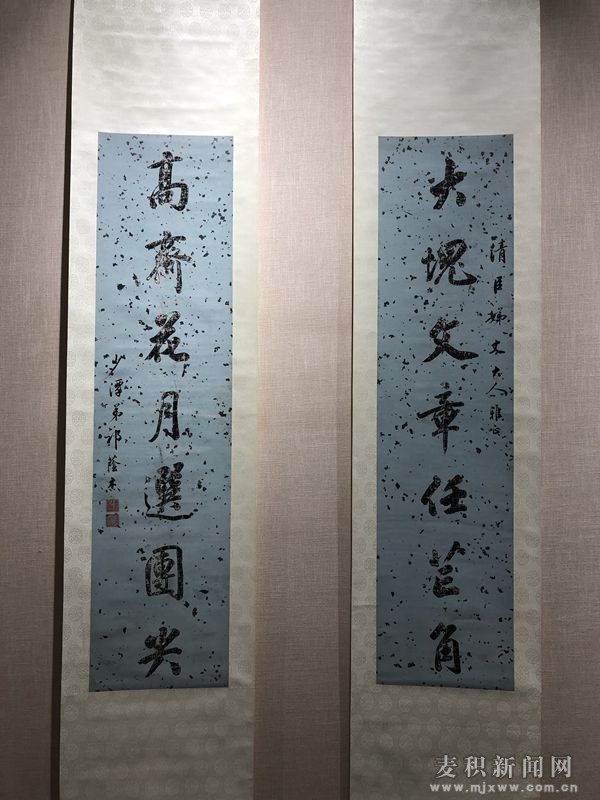 大塊文章任芒角
清臣姊丈大人雅正
高齋花月選團尖
少潭弟祁蔭杰
麦积新闻网
www.mjxww.com.cn